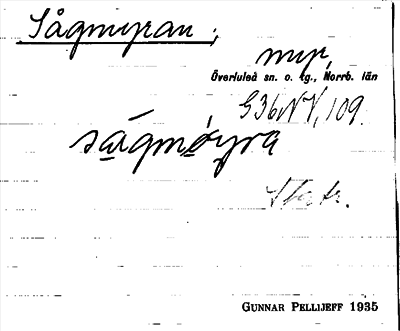 Sågmyran,
myr,
Överluleå sn. o. tg., Norrb. län
G36NV, 109.
sågmøyra
GUNNAR PELLIJEFF 1935